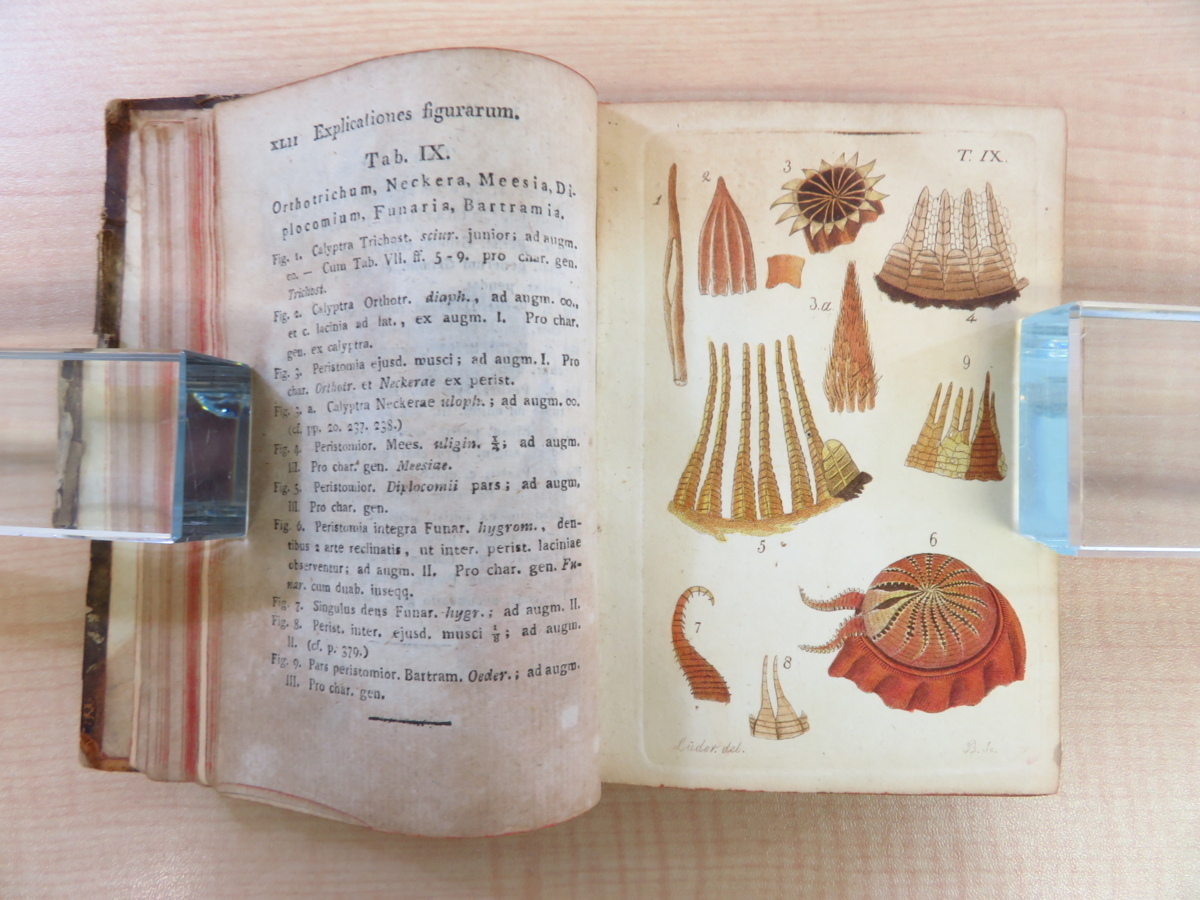 XLII Explicationes figurarum.
Tab. IX.
Orthotrichum, Neckera, Meesia, Di-
plocomium, Funaria, Bartramia.
Fig. 1. Calyptra Trichost. sciur. junior; ad augm.
co. — Cum Tab. VII. ff. 5-9. pro char. gen.
Trichost.
Fig. 2. Calyptra Orthotr. diaph., ad augm. co.,
et c. lacinia ad lat., ex augm. I. Pro char.
gen. ex calyptra.
Fig. 3. Peristomia ejusd. musci; ad augm. I. Pro
char. Orthotr. et Neckerae ex perist.
Fig. 3. a. Calyptra Neckerae uloph.; ad augm. co.
(cf. pp. 20. 237. 238.)
Fig. 4. Peristomior. Mees. uligin. ; ad augm.
III. Pro char. gen. Meesiae.
Fig. 5. Peristomior. Diplocomii pars; ad augm.
III. Pro char. gen.
Fig. 6. Peristomia integra Funar. hygrom., den-
tibus 2 arte reclinatis, ut inter. perist. laciniae
observentur; ad augm. II. Pro char. gen. Fu-
nar. cum duab. inseqq.
Fig. 7. Singulus dens Funar. hygr.; ad augm. II.
Fig. 8. Perist. inter. ejusd. musci 1/8; ad augm.
II. (cf. p. 379.)
Fig. 9. Pars peristomior. Bartram. Oeder.; ad augm.
III. Pro char. gen.
T. IX.
1
2
3
4
3.a
9
5
6
7
8
Lüder. del.
B. sc.